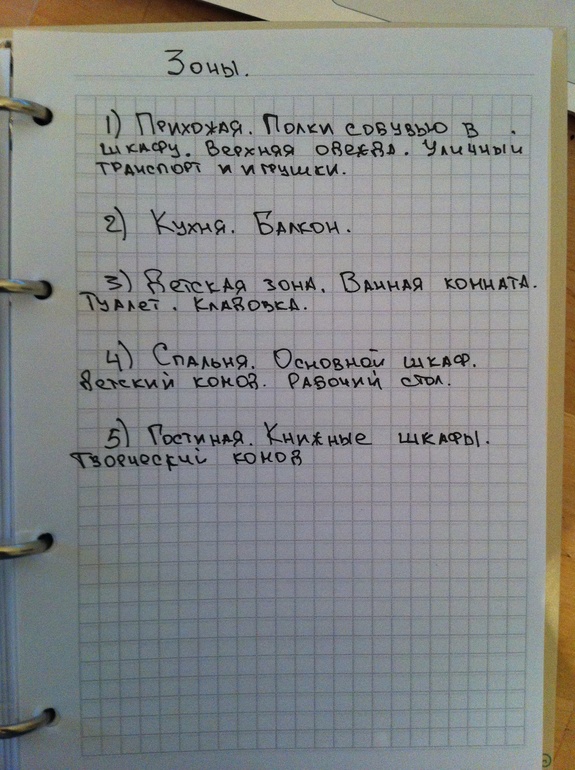 Зоны.
1) Прихожая. Полки с обувью в
шкафу. Верхняя одежда. Уличный
транспорт и игрушки.
2) Кухня. Балкон.
3) Детская зона. Ванная комната.
Туалет. Кладовка.
4) Спальня. Основной шкаф.
Детский комод. Рабочий стол.
5) Гостиная. Книжные шкафы.
Творческий комод